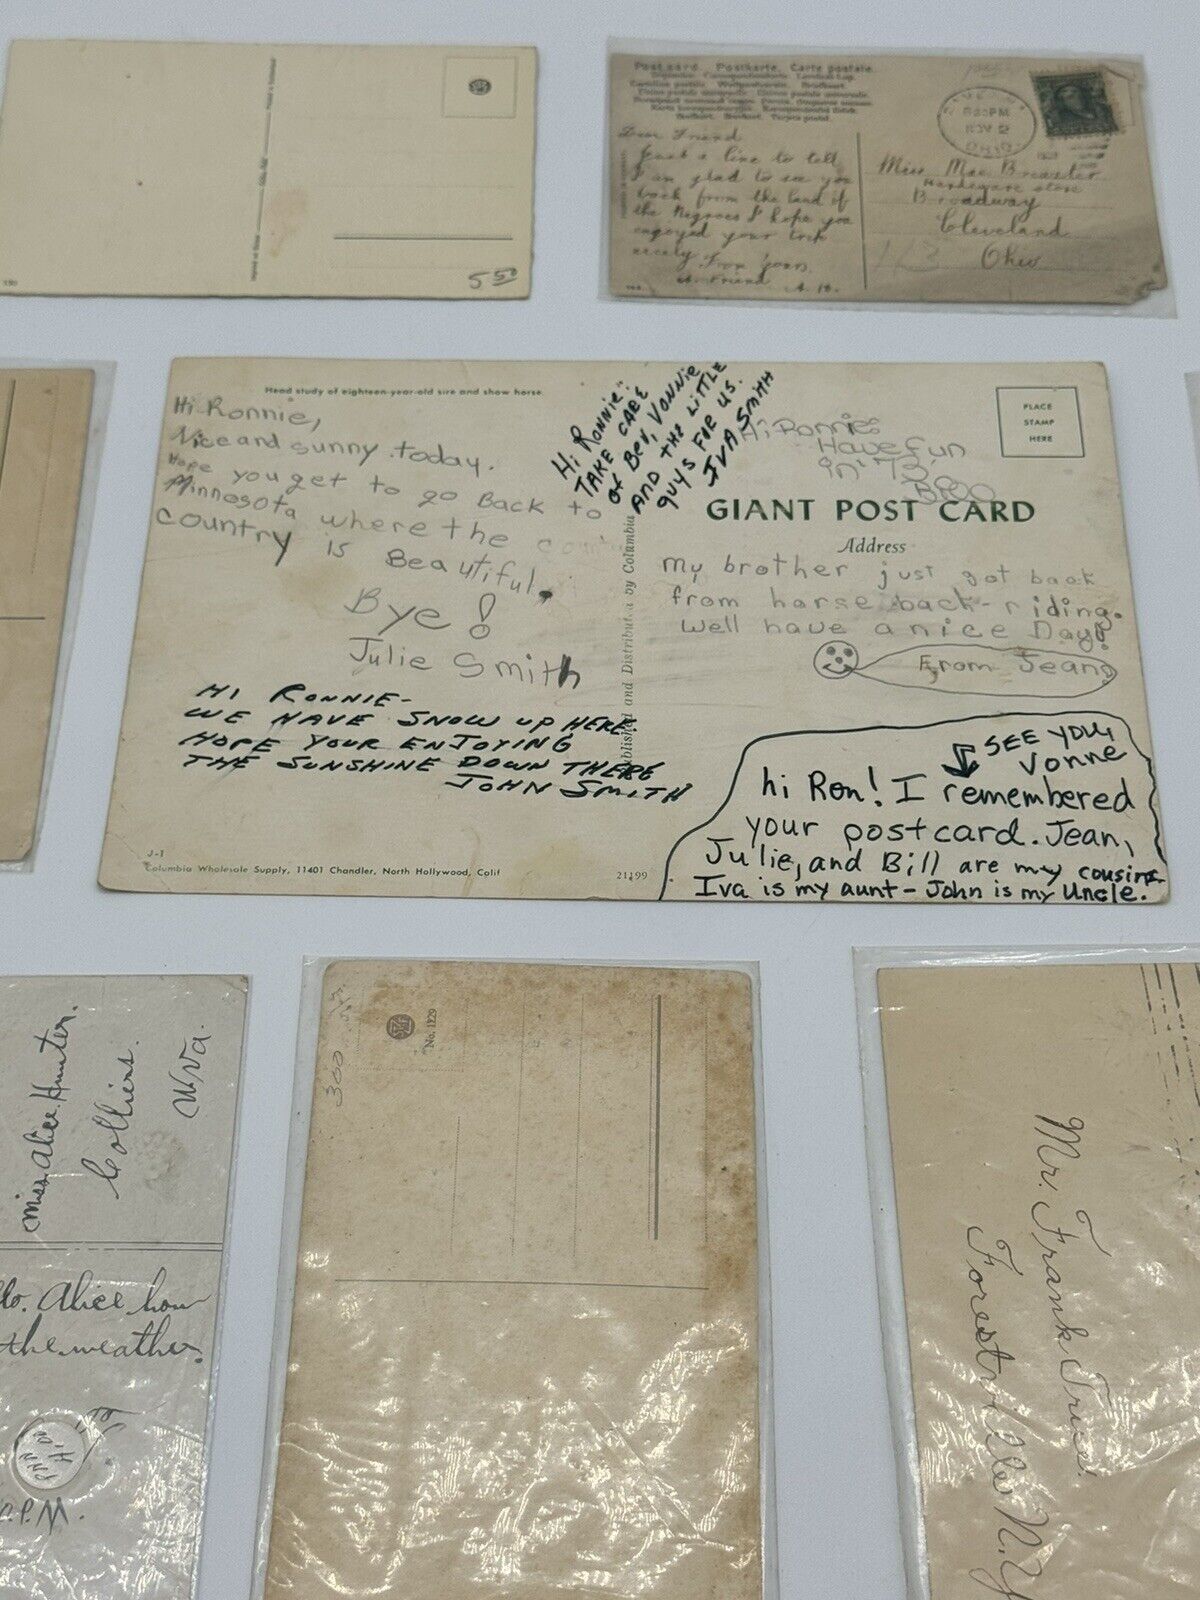 5 50
Post card. Postkarte. Carte postale.
NOV 2
OHIO
Dear Friend
Just a line to tell
I am glad to see you
back from the land of
the Negroes I hope you
enjoyed your trip
nicely From yours
A Friend A. B.
Miss Mae Brewster
Hardware store
Broadway
Cleveland
Ohio
Head study of eighteen-year-old sire and show horse.
Hi Ronnie,
Nice and sunny today.
Hope you get to go Back to
Minnosota where the
country is Beautiful.
Bye!
Julie Smith
HI RONNIE-
WE HAVE SNOW UP HERE.
HOPE YOUR ENJOYING
THE SUNSHINE DOWN THERE
JOHN SMITH
J-1
Columbia Wholesale Supply, 11401 Chandler, North Hollywood, Calif
21199
Hi RONNIE:
TAKE CARE
of BEV, VONNIE
AND THE LITTLE
guys FOR US.
IVA SMITH
Published and Distributed by Columbia
Hi Ronnie
Have fun
in '73'
PLACE
STAMP
HERE
GIANT POST CARD
Address
My brother just got back
from horse back-riding.
Well have a nice Day!
From Jean
SEE YOU,
Vonne
hi Ron! I remembered
your postcard. Jean,
Julie, and Bill are my cousins
Iva is my aunt - John is my Uncle.
Miss Alice Hunter.
Colliers.
W.Va.
Alice how
the weather.
P.M.
300
No. 1229
Mr. Frank Friss.
Forestville N.Y.